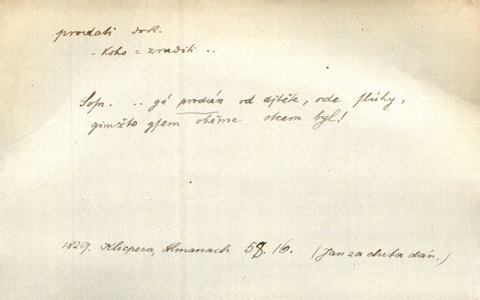 prodati dok.
- koho = zraditi ..
Sopr. .. gá prodán od djtěte, ode slúhy,
gimžto gsem oběma otcem byl!
1829. Klicpera, Almanach 58. 16. (Jan za chrta dán.)